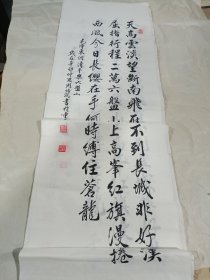 天高雲淡望斷南飛雁不到長城非好漢
屈指行程二萬六盤山上高峯紅旗漫捲
西風今日長纓在手何時縛住蒼龍
毛澤東詞清平樂六盤山